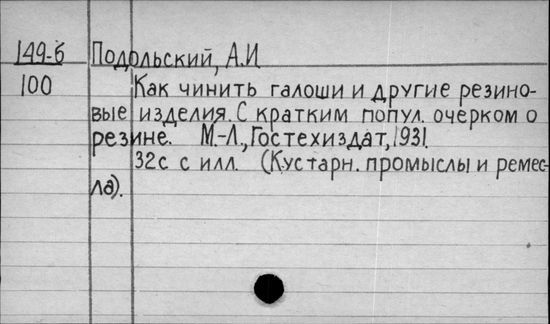 149-б Подольский, А.И
100 Как чинить галоши и другие резино-
вые изделия. С кратким попул. очерком о
резине. М.-Л., Гостехиздат, 1931.
32с с илл. (Кустарн. промыслы и ремес-
ла).